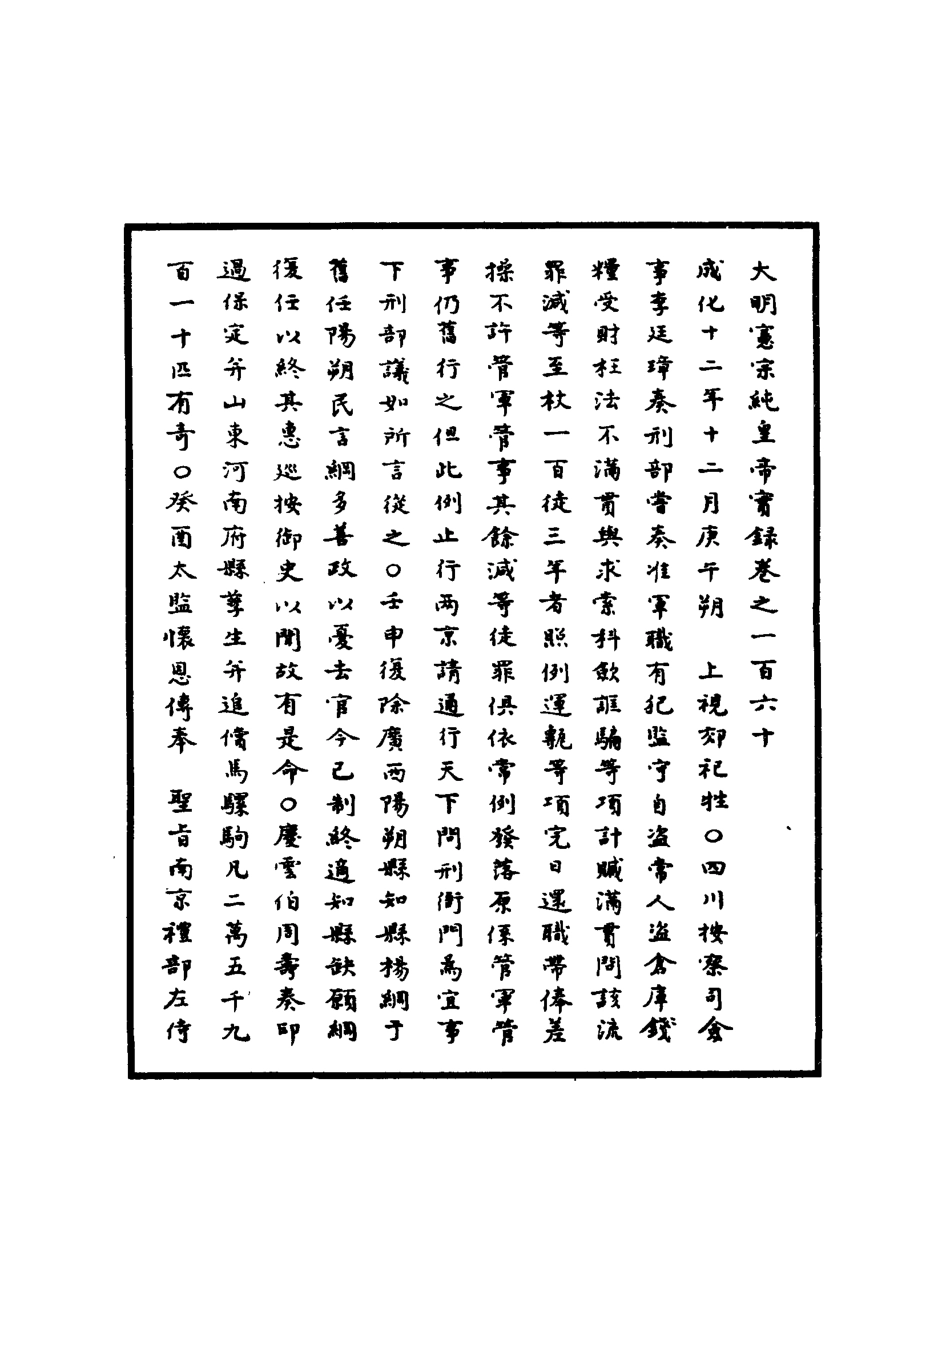 大明憲宗純皇帝實録卷之一百六十
成化十二年十二月庚午朔　上視郊祀牲○四川按察司僉
事李廷璋奏刑部嘗奏准軍職有犯監守自盜常人盜倉庫錢
糧受財枉法不滿貫與求索科歛誆騙等項計贓滿貫問該流
罪減等至杖一百徒三年者照例運甎等項完日還職帶俸差
操不許管軍管事其餘減等徒罪俱依常例發落原係管軍管
事仍舊行之但此例止行两京請通行天下問刑衙門爲宜事
下刑部議如所言從之○壬申復除廣西陽朔縣知縣楊綱于
舊任陽朔民言綱多善政以憂去官今已制終適知縣缺願綱
復任以終其惠巡按御史以聞故有是命○慶雲伯周壽奏印
過保定并山東河南府縣孳生并追償馬騾駒凡二萬五千九
百一十匹有奇○癸酉太監懷恩傳奉　聖旨南京禮部左侍